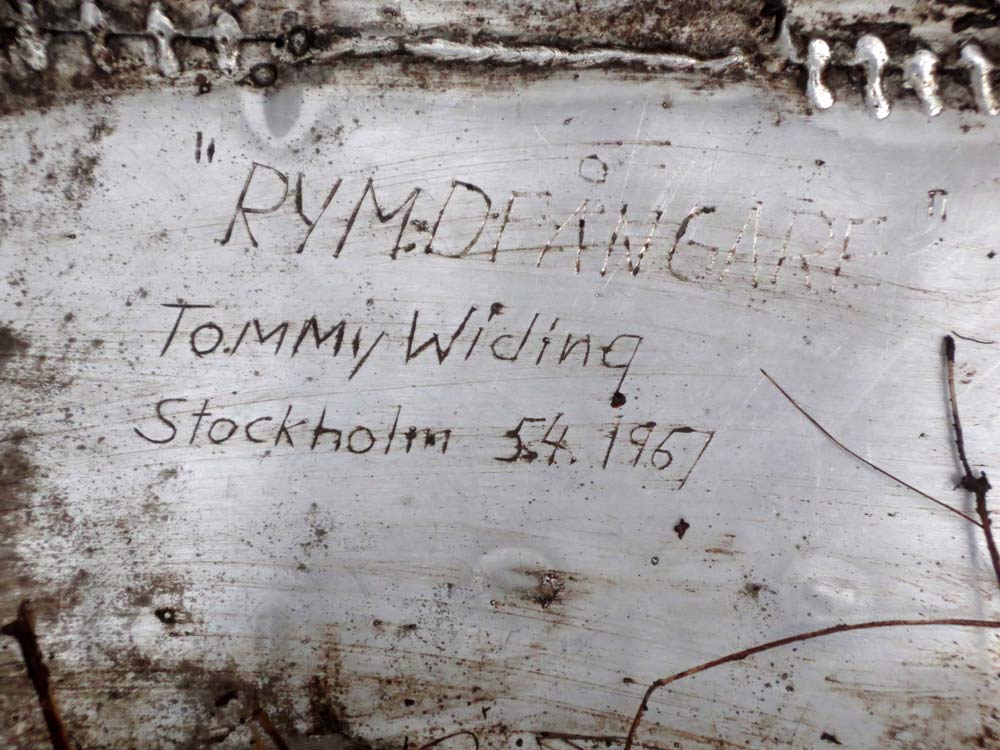 "RYMDFÅNGARE"
Tommy Widing
Stockholm 5.4.1967